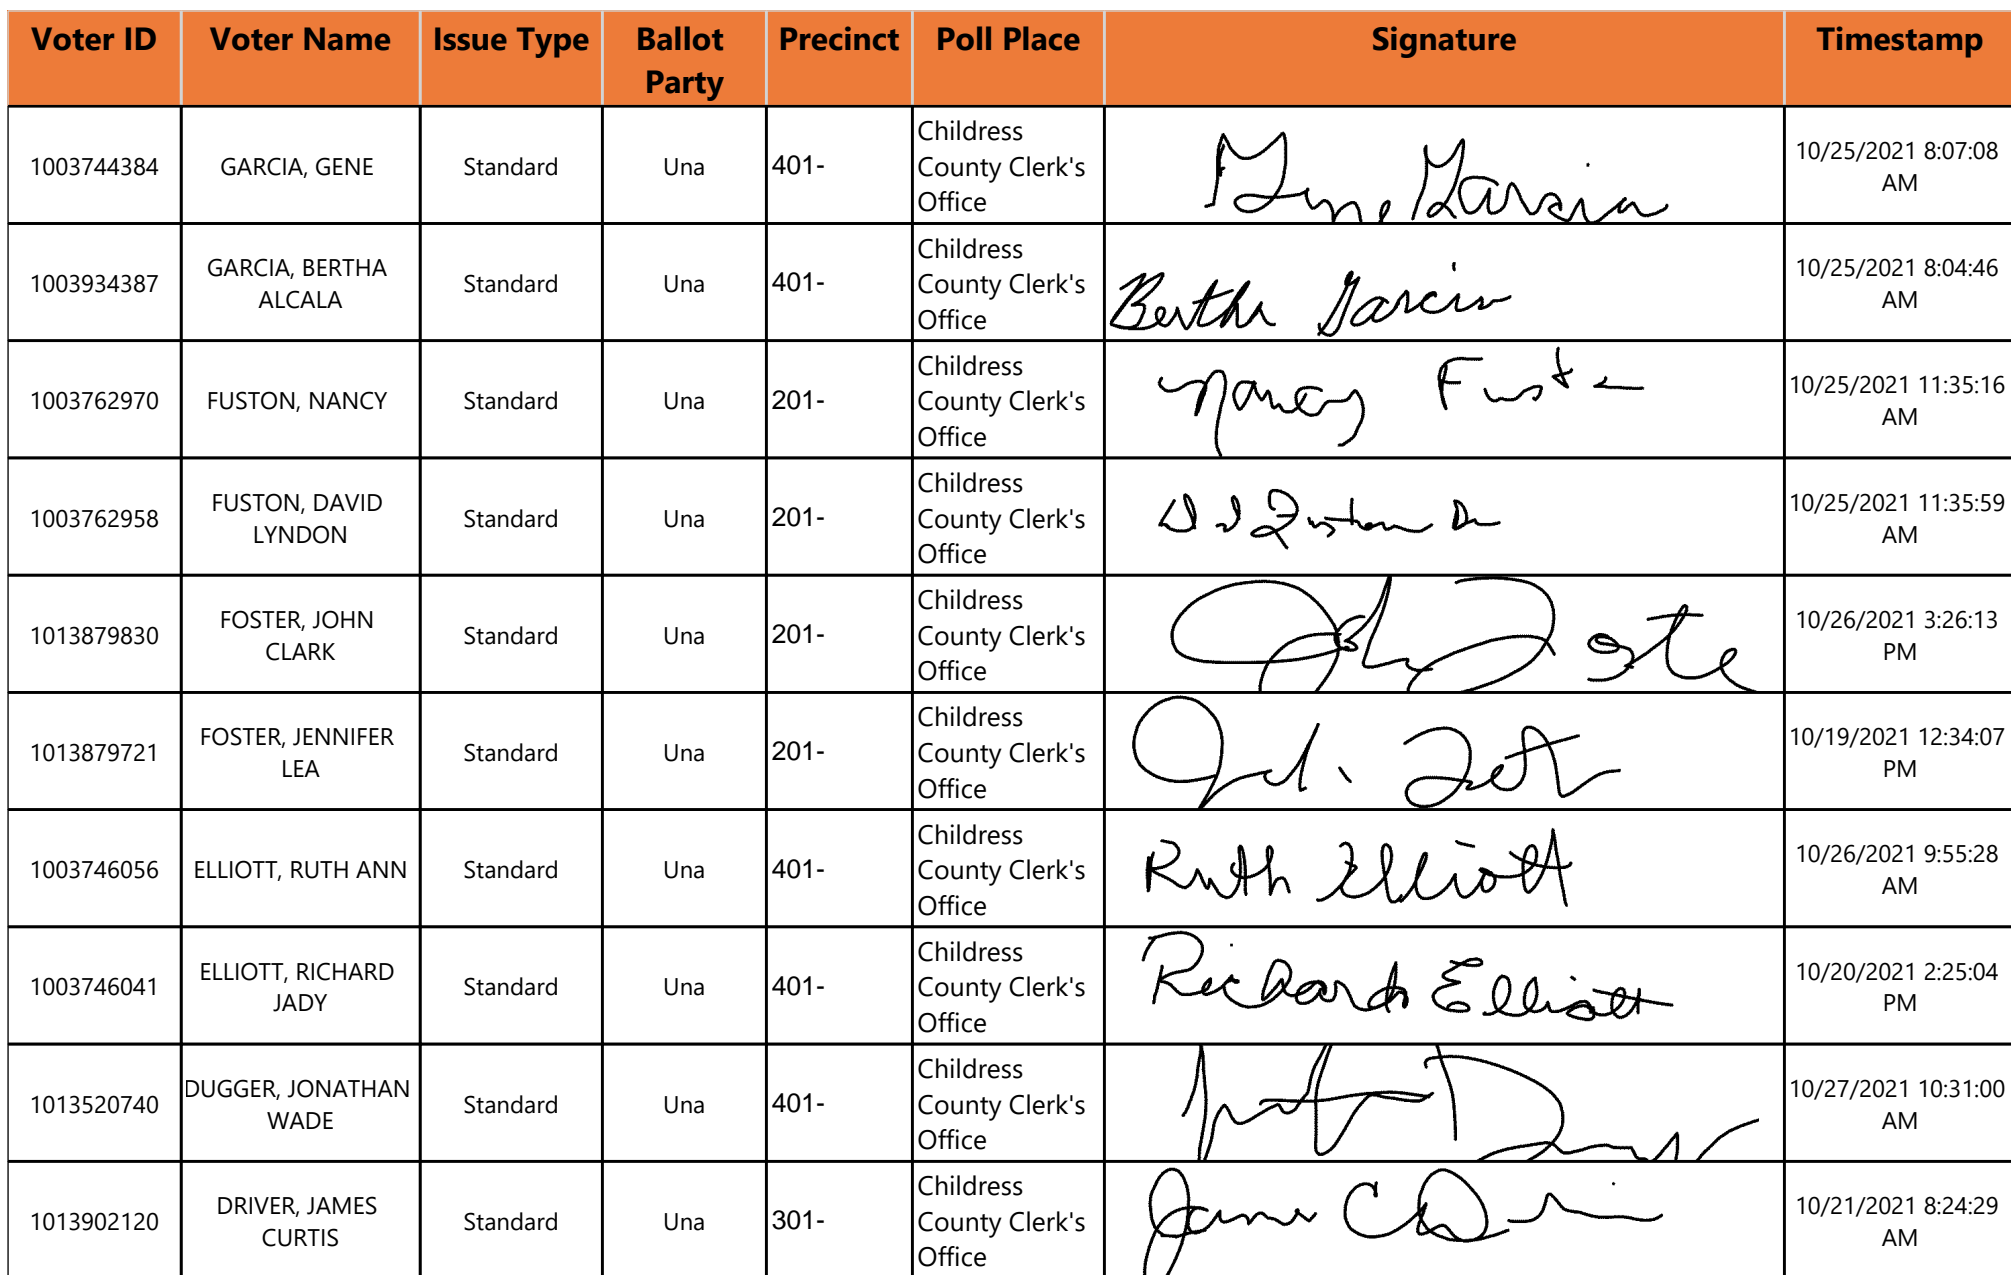 Voter ID Voter Name Issue Type Ballot Party Precinct Poll Place Signature Timestamp
1003744384 GARCIA, GENE Standard Una 401- Childress County Clerk's Office Gene Garcia 10/25/2021 8:07:08 AM
1003934387 GARCIA, BERTHA ALCALA Standard Una 401- Childress County Clerk's Office Bertha Garcia 10/25/2021 8:04:46 AM
1003762970 FUSTON, NANCY Standard Una 201- Childress County Clerk's Office Nancy Fuston 10/25/2021 11:35:16 AM
1003762958 FUSTON, DAVID LYNDON Standard Una 201- Childress County Clerk's Office Fuston 10/25/2021 11:35:59 AM
1013879830 FOSTER, JOHN CLARK Standard Una 201- Childress County Clerk's Office John Foste 10/26/2021 3:26:13 PM
1013879721 FOSTER, JENNIFER LEA Standard Una 201- Childress County Clerk's Office 10/19/2021 12:34:07 PM
1003746056 ELLIOTT, RUTH ANN Standard Una 401- Childress County Clerk's Office Ruth Elliott 10/26/2021 9:55:28 AM
1003746041 ELLIOTT, RICHARD JADY Standard Una 401- Childress County Clerk's Office Richard Elliott 10/20/2021 2:25:04 PM
1013520740 DUGGER, JONATHAN WADE Standard Una 401- Childress County Clerk's Office 10/27/2021 10:31:00 AM
1013902120 DRIVER, JAMES CURTIS Standard Una 301- Childress County Clerk's Office James C 10/21/2021 8:24:29 AM